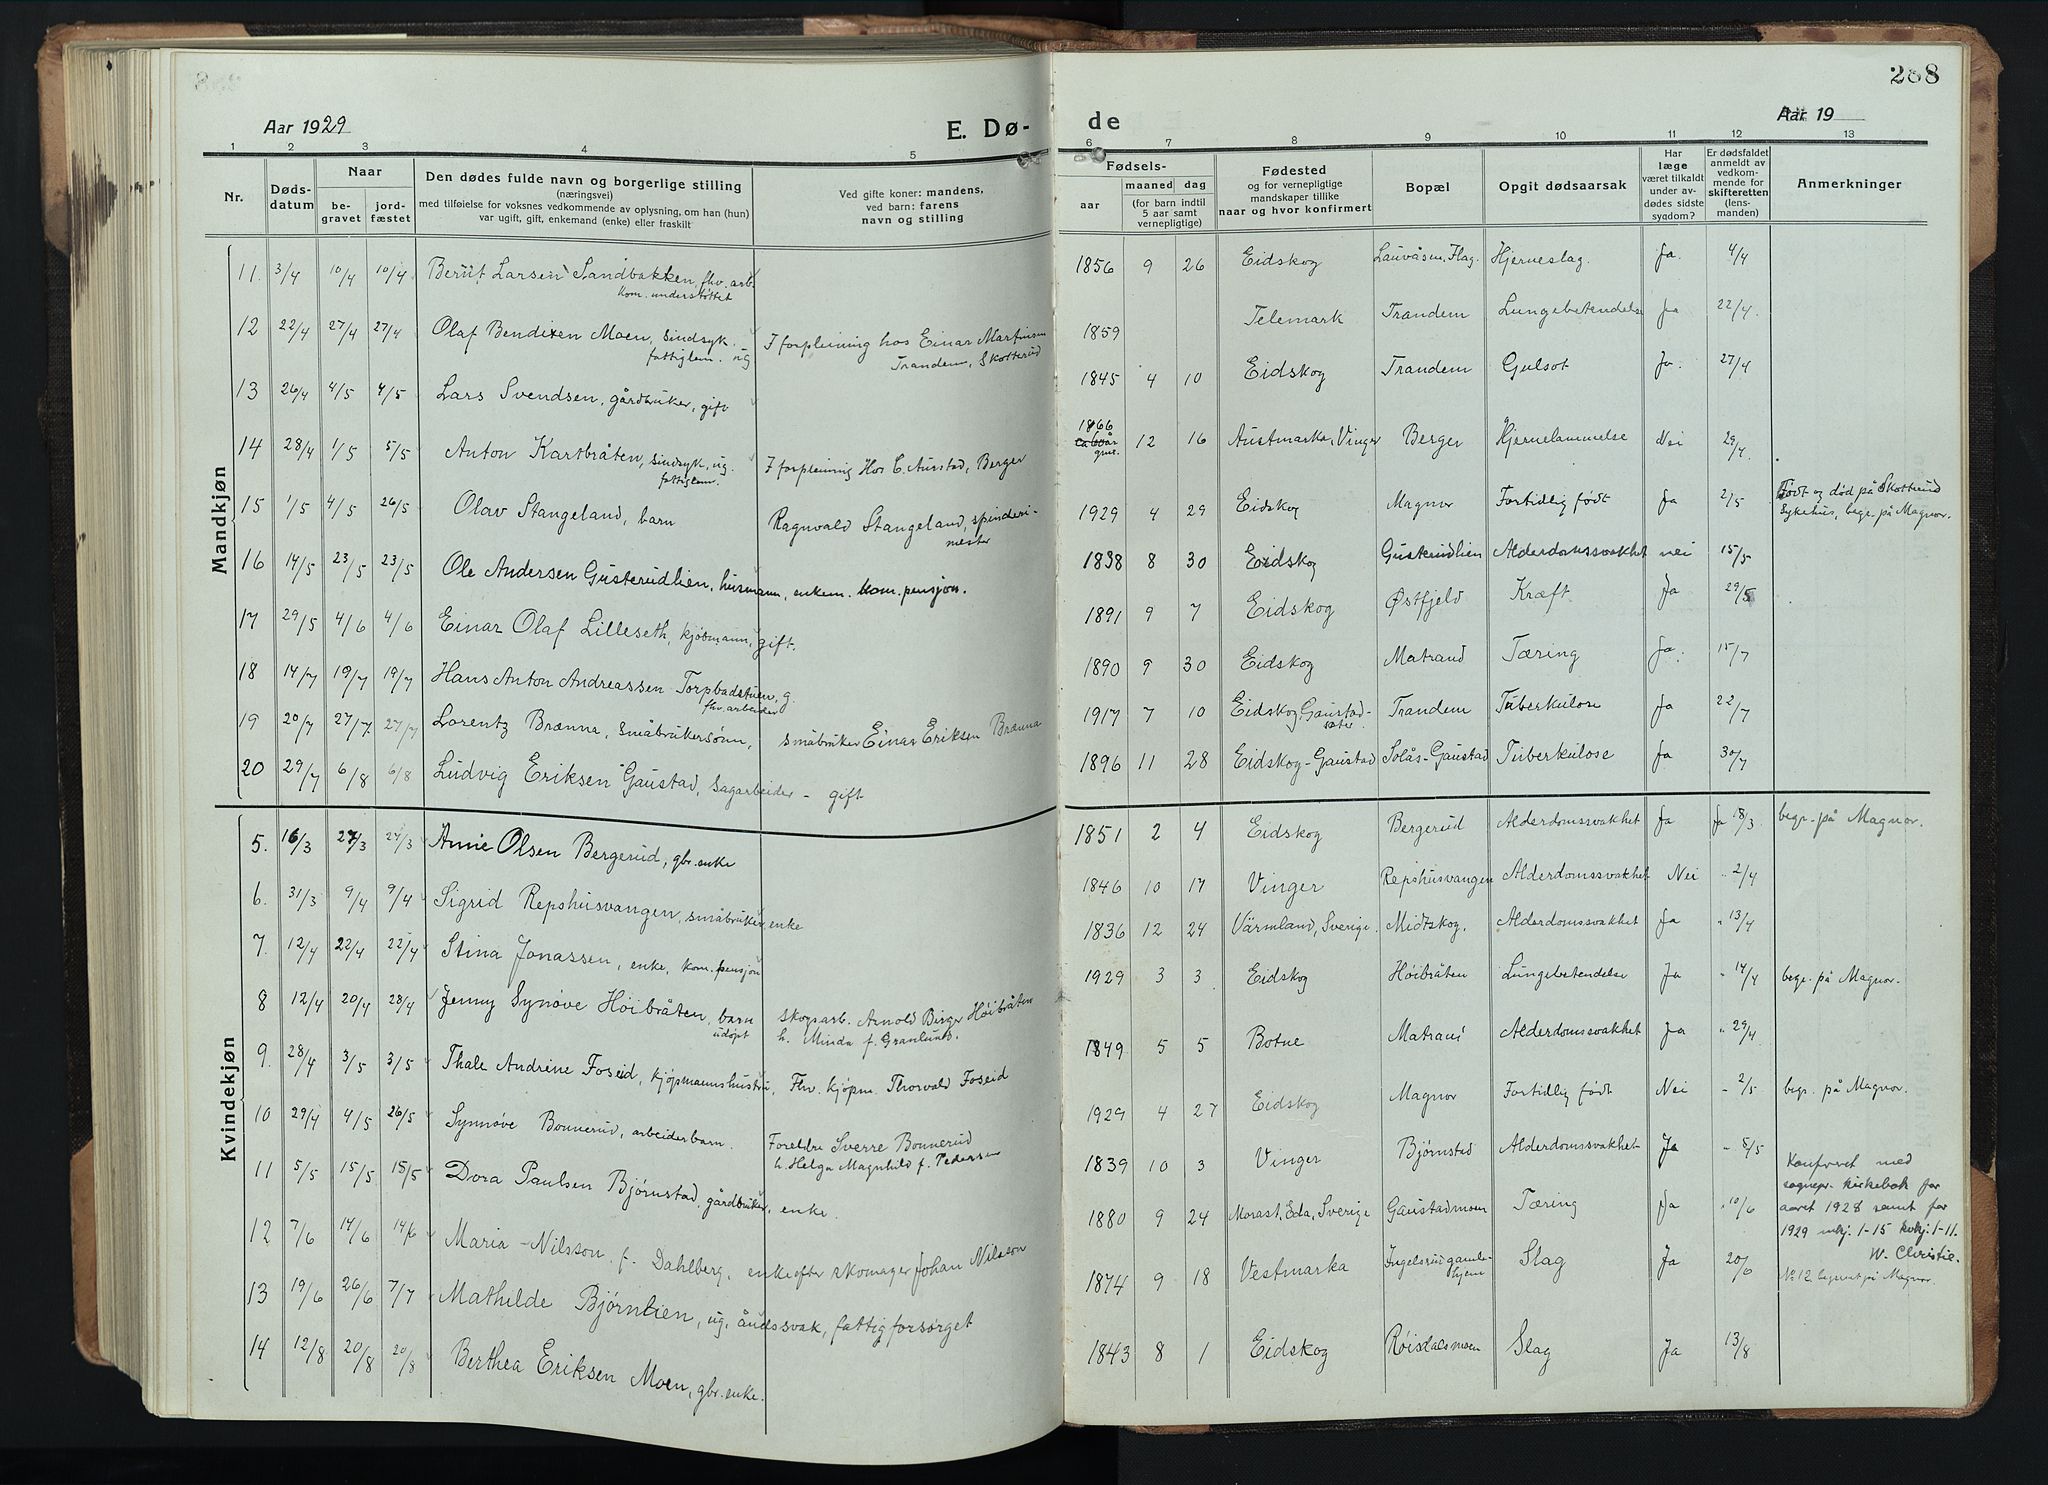 268
Aar 1929
E. Dø-
de
Aar 19
1 2 3 4 5 6 7 8 9 10 11 12 13
Nr.
Døds-
datum
Naar
be-
gravet
jord-
fæstet
Den dødes fulde navn og borgerlige stilling
(næringsvei)
med tilføielse for voksnes vedkommende av oplysning, om han (hun)
var ugift, gift, enkemand (enke) eller fraskilt
Ved gifte koner: mandens,
ved barn: farens
navn og stilling
Fødsels-
aar
maaned
dag
(for barn indtil
5 aar samt
vernepligtige)
Fødested
og for vernepligtige
mandskaper tillike
naar og hvor konfirmert
Bopæl
Opgit dødsaarsak
Har
læge
været tilkaldt
under av-
dødes sidste
sygdom?
Er dødsfaldet
anmeldt av
vedkom-
mende for
skifteretten
(lens-
manden)
Anmerkninger
Mandkjøn
11. 3/4 10/4 10/4 Berut Larsen Sandbakken, fhv. arb. 1856 9 26 Eidskog Lauvåsen, Flag. Hjerneslag. Ja. 4/4
kom. understøttet
12 22/4 27/4 27/4 Olaf Bendixen Moen, sindsyk. I forpleining hos Einar Martinsen 1859 Telemark Trandem Lungebetendelse ja 22/4.
fattiglem. ug Trandem, Skotterud
13 26/4 4/5 4/5 Lars Svendsen, gårdbruker, gift 1845 4 10 Eidskog Trandem Gulsot Ja. 27/4
14 28/4 1/5 5/5 Anton Kartbråten, sindsyk, ug. I forpleining hos C. Aurstad, Berger 1866 12 16 Austmarka, Vinger Berger Hjernelammelse Nei 29/4.
fattiglem. ca 60 år
15 1/5 4/5 26/5 Olav Stangeland, barn Ragnvald Stangeland, spinderi- 1929 4 29 Eidskog Magnor Fortidlig født Ja 2/5 Født og død på Skotterud
mester sykehus, begr. på Magnor.
16 14/5 23/5 23/5 Ole Andersen Gusterudlien, husmann, enkem. kom. pensjon. 1838 8 30 Eidskog Gusterudlien Alderdomssvakhet nei 15/5
17 29/5 4/6 4/6 Einar Olaf Lilleseth, kjøbmann, gift. 1891 9 7 Eidskog Østfjeld Kræft Ja 29/5
18 14/7 19/7 19/7 Hans Anton Andreassen Torpbadstuen, g. 1890 9 30 Eidskog Matrand Tæring Ja. 15/7
fhv. arbeider
19 20/7 27/7. 27/7 Lorentz Brænna, småbrukersønn, småbruker Einar Eriksen Brænna 1917 7 10 Eidskog, Gaustad- Trandem Tuberkulose Ja 22/7
sæter
20 29/7 6/8 6/8 Ludvig Eriksen Gaustad, sagarbeider - gift 1896 11 28 Eidskog-Gaustad Solås-Gaustad Tuberkulose Ja 30/7
Kvindekjøn
5. 16/3 27/3 27/3 Anne Olsen Bergerud, gbr. enke 1851 2 4 Eidskog Bergerud Alderdomssvakhet Ja Ja 18/3. begr. på Magnor.
6. 31/3 9/4 9/4 Sigrid Repshusvangen, småbruker enke 1846 10 17 Vinger Repshusvangen Alderdomssvakhet Nei " 2/4
7. 12/4 22/4 22/4 Stina Jonassen, enke, kom. pensjon 1836 12 24 Värmland, Sverige. Midtskog. Alderdomssvakhet Ja " 13/4
8 12/4 20/4 28/4 Jenny Synøve Høibråten, barn skogsarb. Arnold Birger Høibråten 1929 3 3 Eidskog Høibråten Lungebetendelse Ja " 14/4 begr. på Magnor.
udøpt h. Minda f. Granlund.
9. 28/4 3/5 3/5 Thale Andrine Foseid, kjøpmannshustru, Fhv. kjøpm. Thorvald Foseid 1849 5 5 Botne Matrand Alderdomssvakhet Ja " 29/4.
10 29/4 4/5 26/5 Synnøve Bonnerud, arbeiderbarn. Foreldre Sverre Bonnerud 1929 4 27 Eidskog Magnor Fortidlig født Nei " 2/5 begr. på Magnor.
h. Helga Magnhild f. Pedersen
11 5/5 15/5 15/5 Dora Paulsen Bjørnstad, gårdbruker, enke. 1839 10 3 Vinger Bjørnstad Alderdomssvakhet Ja " 8/5 Konferert med
sognepr. kirkebok for
12 7/6 14/6 14/6 Maria Nilsson f. Dahlberg, enke efter skomager Johan Nilsson 1880 9 24 Morast, Eda, Sverige Gaustadmoen Tæring Ja " 10/6 aaret 1928 samt for
1929 mkj. 1-15 kvkj. 1-11.
W. Christie.
13 19/6 26/6 7/7 Mathilde Bjørnlien, ug. åndssvak, fattigforsørget 1874 9 18 Vestmarka Ingelsrud gamle- Slag Ja 20/6 No 12 begravet på Magnor.
hjem
14 12/8 20/8 20/8 Berthea Eriksen Moen, gbr. enke. 1843 8 1 Eidskog Røisdalsmoen Slag Ja 13/8